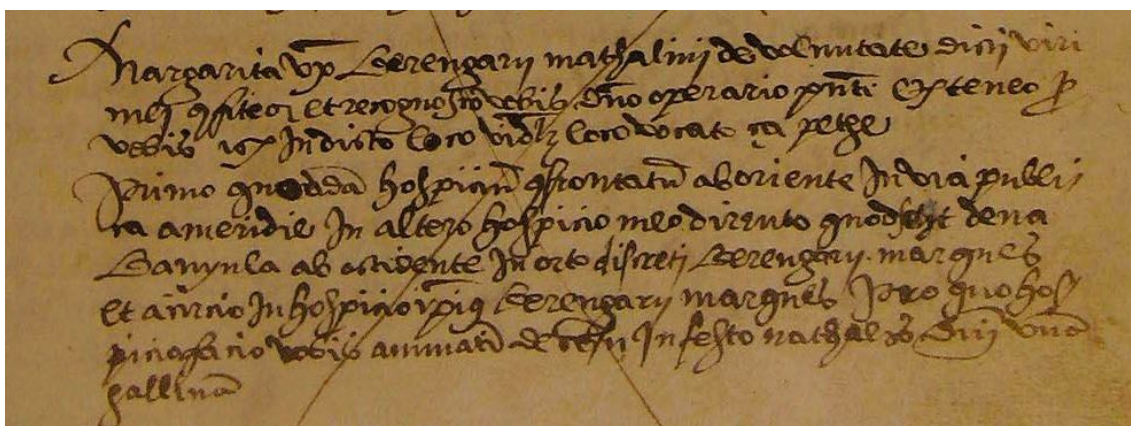 Margarita ux Berengarii mathalini de volumtate dicti viri
mei confiteor et recognosco vobis dno operario pnti Ex teneo p
vobis in dicto loco vidlz loco vocato ça pethe
Primo quoddã hospiciũ confrontatũ ab oriente In via publi
ca a meridie In altero hospicio meo dirruto quod fuit de na
Banyula ab occidente In orto discreti Berengarii marques
et a circio In hospicio ipius Berengarii marques Pro quo hos
picio facio vobis annuatĩ de censu In festo nathalis Dni unã
gallinã